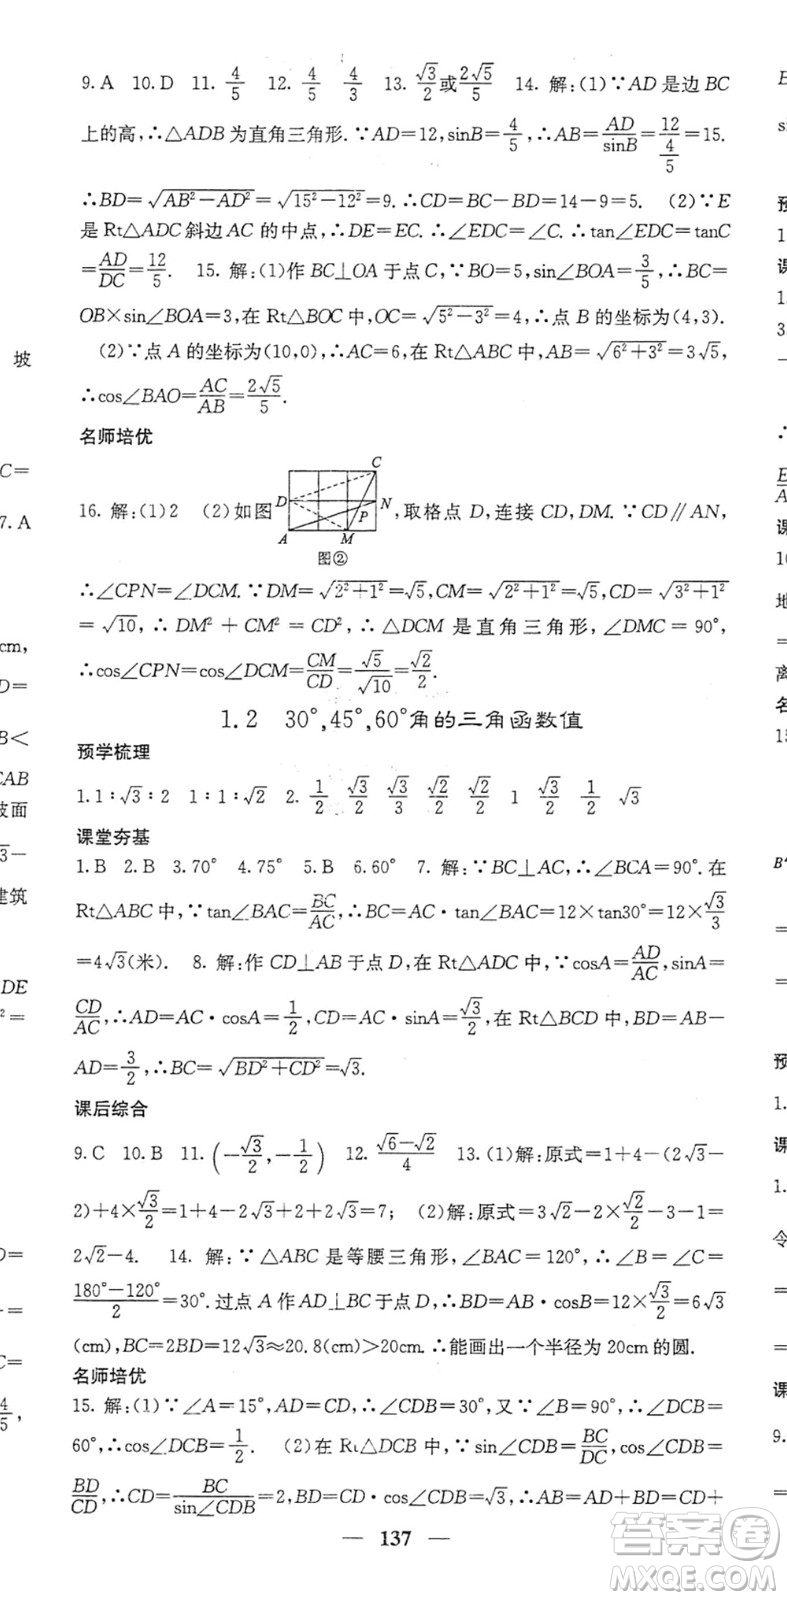 9. A 10. D 11. 4/5 12. 4/5 4/3 13. √3/2或2√5/5 14. 解:(1)∵AD是边BC
上的高,∴△ADB为直角三角形.∵AD=12,sinB=4/5,∴AB=AD/sinB=12/(4/5)=15.
∴BD=√(AB²-AD²)=√(15²-12²)=9.∴CD=BC-BD=14-9=5. (2)∵E
是Rt△ADC斜边AC的中点,∴DE=EC.∴∠EDC=∠C.∴tan∠EDC=tanC
=AD/DC=12/5. 15. 解:(1)作BC⊥OA于点C,∵BO=5,sin∠BOA=3/5,∴BC=
OB×sin∠BOA=3,在Rt△BOC中,OC=√(5²-3²)=4,∴点B的坐标为(4,3).
(2)∵点A的坐标为(10,0),∴AC=6,在Rt△ABC中,AB=√(6²+3²)=3√5,
∴cos∠BAO=AC/AB=2√5/5.
名师培优
16. 解:(1)2 (2)如图 D C N P A M 图② ,取格点D,连接CD,DM.∵CD∥AN,
∴∠CPN=∠DCM.∵DM=√(2²+1²)=√5,CM=√(2²+1²)=√5,CD=√(3²+1²)
=√10,∴DM²+CM²=CD²,∴△DCM是直角三角形,∠DMC=90°,
∴cos∠CPN=cos∠DCM=CM/CD=√5/√10=√2/2.
1.2 30°,45°,60°角的三角函数值
预学梳理
1. 1∶√3∶2 1∶1∶√2 2. 1/2 √3/2 √3/3 √2/2 √2/2 1 √3/2 1/2 √3
课堂夯基
1. B 2. B 3. 70° 4. 75° 5. B 6. 60° 7. 解:∵BC⊥AC,∴∠BCA=90°.在
Rt△ABC中,∵tan∠BAC=BC/AC,∴BC=AC·tan∠BAC=12×tan30°=12×√3/3
=4√3(米). 8. 解:作CD⊥AB于点D,在Rt△ADC中,∵cosA=AD/AC,sinA=
CD/AC,∴AD=AC·cosA=1/2,CD=AC·sinA=√3/2,在Rt△BCD中,BD=AB-
AD=3/2,∴BC=√(BD²+CD²)=√3.
课后综合
9. C 10. B 11. (-√3/2,-1/2) 12. (√6-√2)/4 13. (1)解:原式=1+4-(2√3-
2)+4×√3/2=1+4-2√3+2+2√3=7; (2)解:原式=3√2-2×√2/2-3-1=
2√2-4. 14. 解:∵△ABC是等腰三角形,∠BAC=120°,∴∠B=∠C=
(180°-120°)/2=30°.过点A作AD⊥BC于点D,∴BD=AB·cosB=12×√3/2=6√3
(cm),BC=2BD=12√3≈20.8(cm)>20cm.∴能画出一个半径为20cm的圆.
名师培优
15. 解:(1)∵∠A=15°,AD=CD,∴∠CDB=30°,又∵∠B=90°,∴∠DCB=
60°,∴cos∠DCB=1/2. (2)在Rt△DCB中,∵sin∠CDB=BC/DC,cos∠CDB=
BD/CD,∴CD=BC/sin∠CDB=2,BD=CD·cos∠CDB=√3,∴AB=AD+BD=CD+
— 137 —
答案卷
MXQE.COM